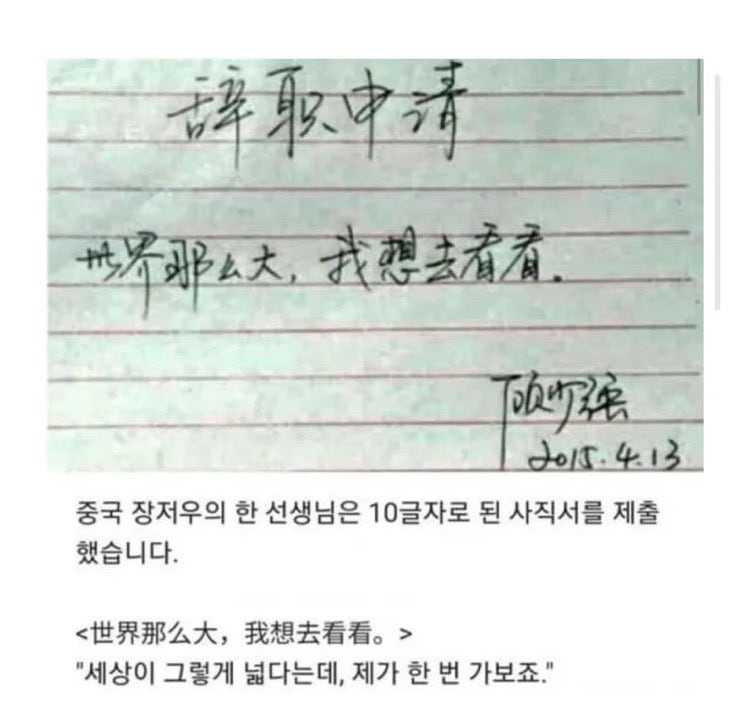 辞职申请
世界那么大，我想去看看.
顾少强
2015.4.13
중국 장저우의 한 선생님은 10글자로 된 사직서를 제출
했습니다.
<世界那么大，我想去看看。>
"세상이 그렇게 넓다는데, 제가 한 번 가보죠."